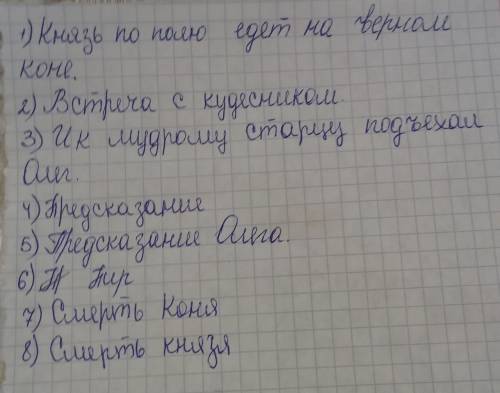 1) Князь по полю едет на верном
коне.
2) Встреча с кудесником.
3) И к мудрому старцу подъехал
Олег.
4) Предсказание
5) Предсказание Олега.
6) П Пир
7) Смерть Коня
8) Смерть князя